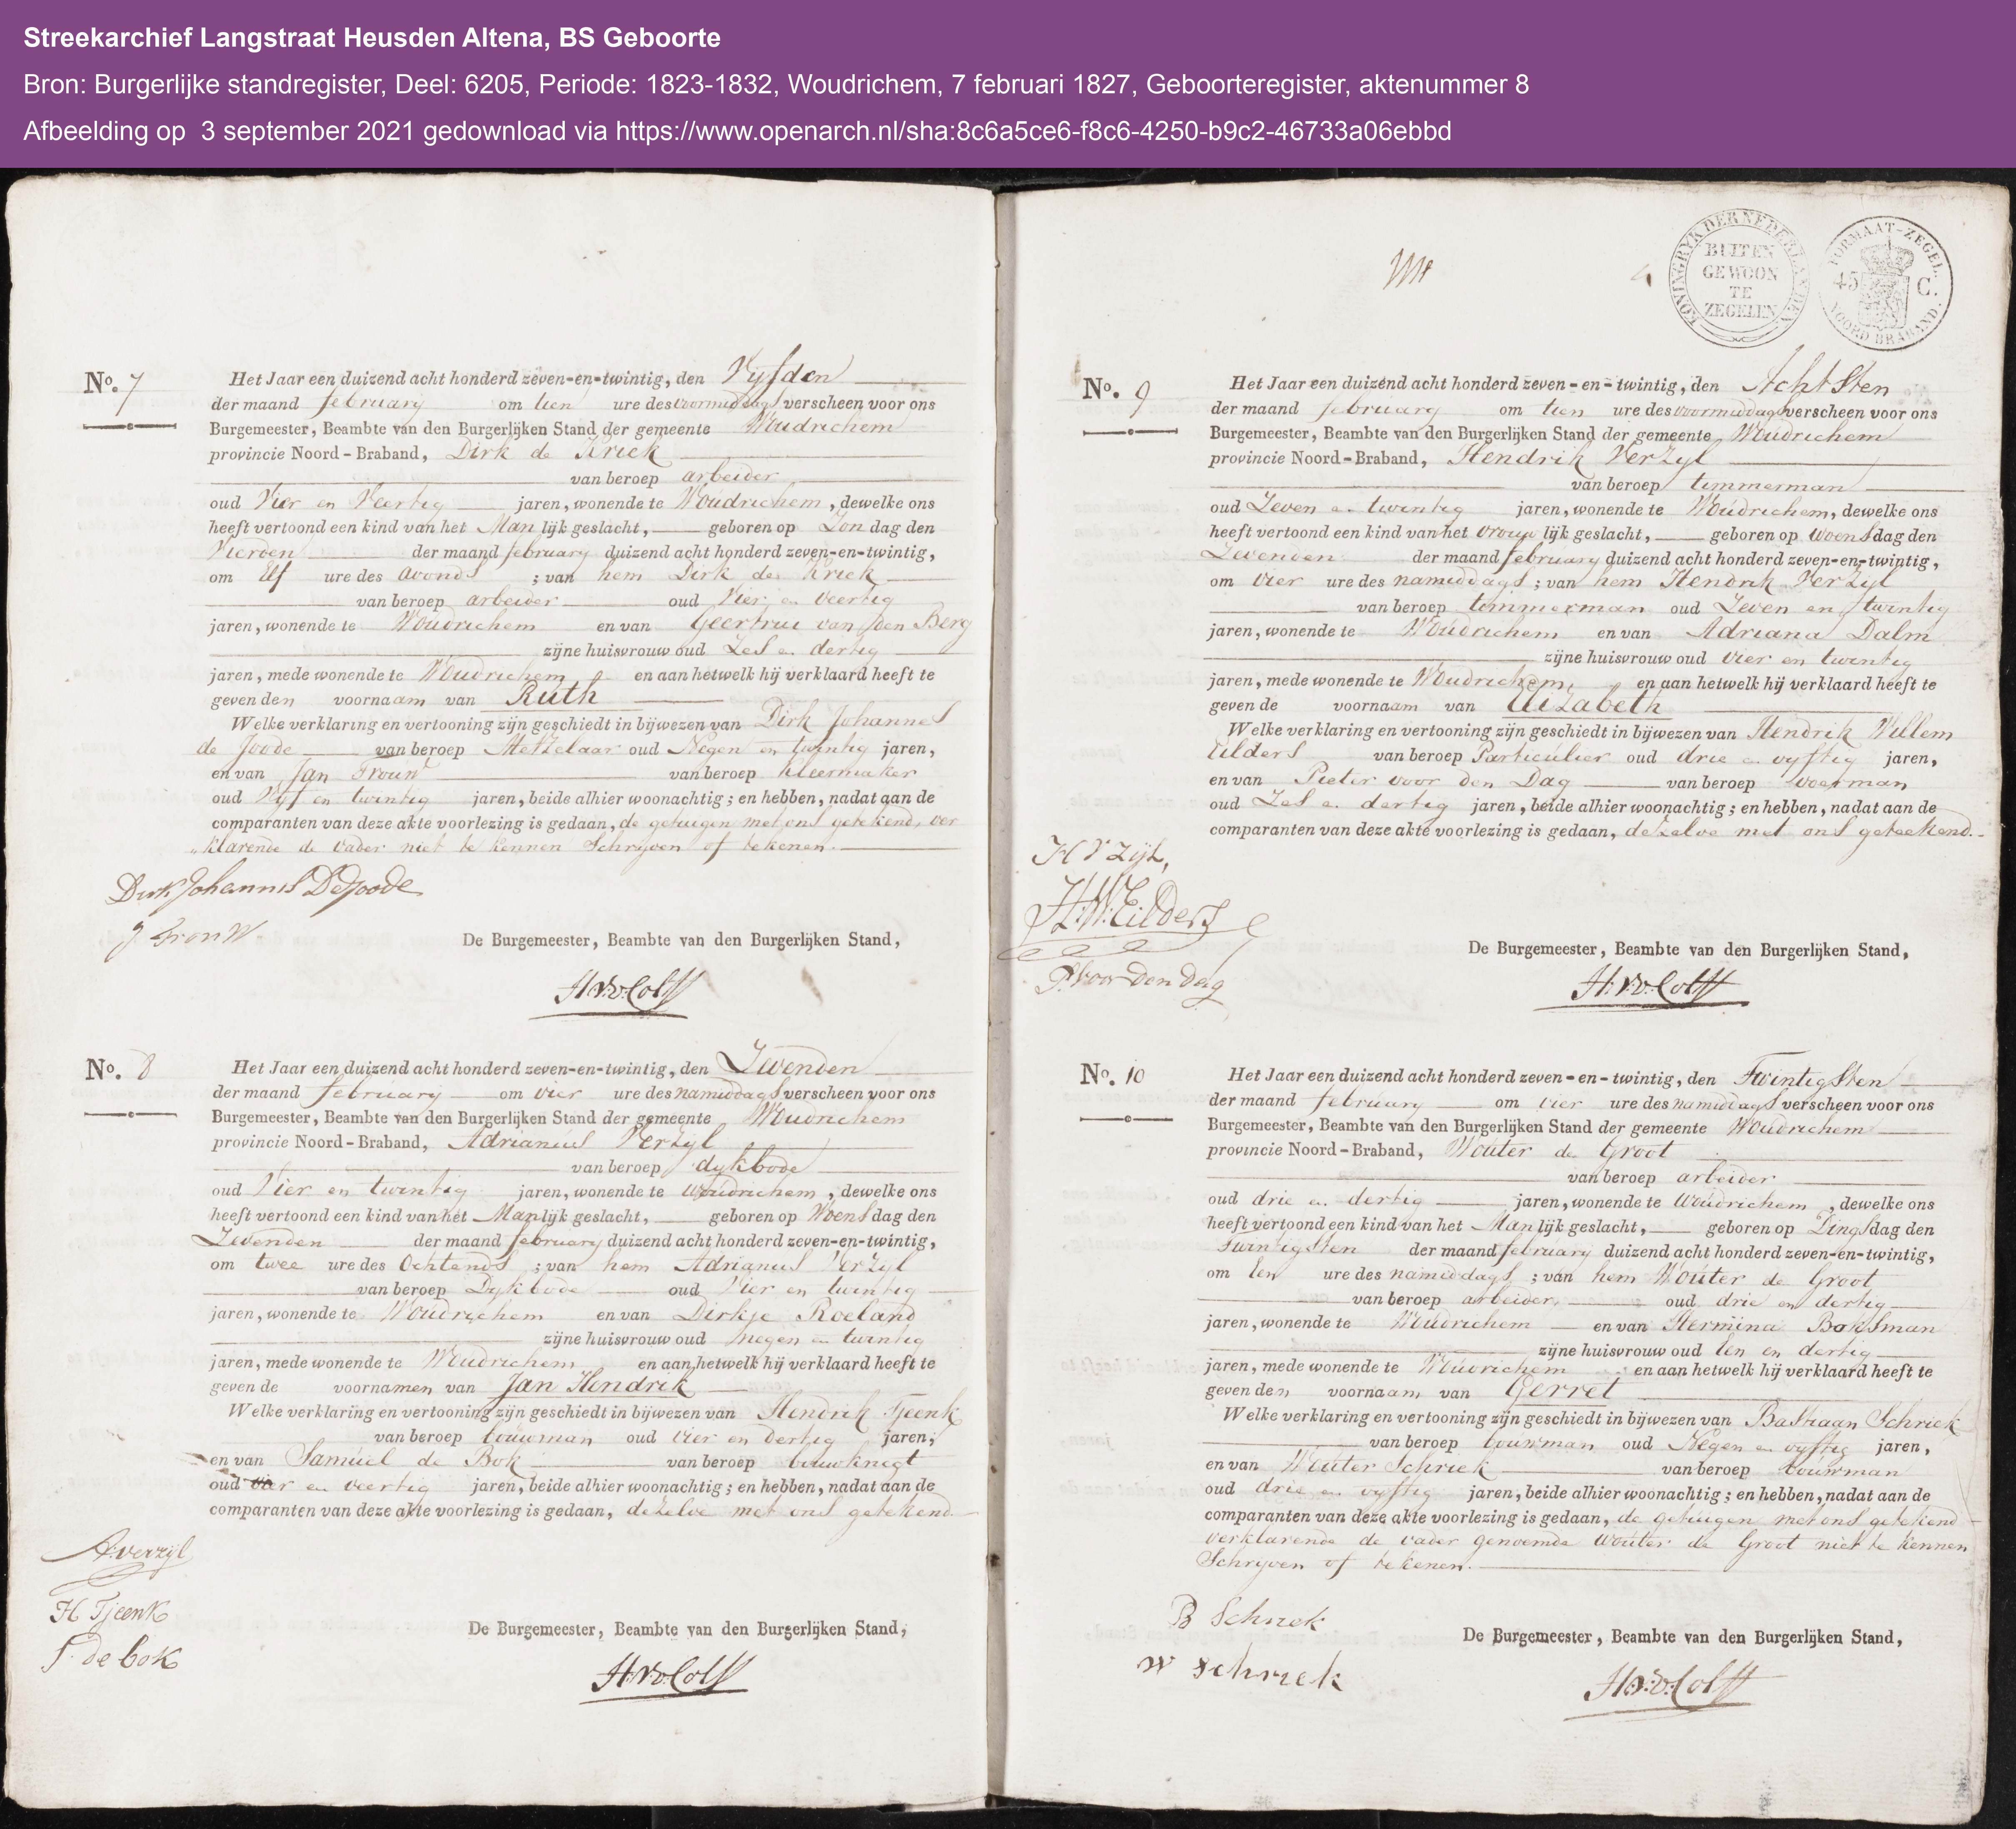 Streekarchief Langstraat Heusden Altena, BS Geboorte
Bron: Burgerlijke standregister, Deel: 6205, Periode: 1823-1832, Woudrichem, 7 februari 1827, Geboorteregister, aktenummer 8
Afbeelding op 3 september 2021 gedownload via https://www.openarch.nl/sha:8c6a5ce6-f8c6-4250-b9c2-46733a06ebbd
No. 7
Het Jaar een duizend acht honderd zeven-en-twintig, den Vyfden
der maand february om tien ure des voormiddags verscheen voor ons
Burgemeester, Beambte van den Burgerlijken Stand der gemeente Woudrichem
provincie Noord-Braband, Dirk de Kriek
van beroep arbeider
oud Vier en Veertig jaren, wonende te Woudrichem, dewelke ons
heeft vertoond een kind van het Manlijk geslacht, geboren op Zondag den
Vierden der maand february duizend acht honderd zeven-en-twintig,
om Elf ure des avonds ; van hem Dirk de Kriek
van beroep arbeider oud Vier en veertig
jaren, wonende te Woudrichem en van Geertrui van den Berg
zijne huisvrouw oud Zes en dertig
jaren, mede wonende te Woudrichem en aan hetwelk hij verklaard heeft te
geven den voornaam van Ruth
Welke verklaring en vertooning zijn geschiedt in bijwezen van Dirk Johannes
de Joode van beroep Metzelaar oud Negen en twintig jaren,
en van Jan Trouw van beroep kleermaker
oud Vyf en twintig jaren, beide alhier woonachtig; en hebben, nadat aan de
comparanten van deze akte voorlezing is gedaan, de getuigen met ons getekend, ver
„klarende de vader niet te kennen Schryven of tekenen.
Dirk Johannis DeJoode
J Trouw
De Burgemeester, Beambte van den Burgerlijken Stand,
H.v.d.Colff
No. 8
Het Jaar een duizend acht honderd zeven-en-twintig, den Zevenden
der maand february om vier ure des namiddags verscheen voor ons
Burgemeester, Beambte van den Burgerlijken Stand der gemeente Woudrichem
provincie Noord-Braband, Adrianus Verzyl
van beroep dykbode
oud Vier en twintig jaren, wonende te Woudrichem, dewelke ons
heeft vertoond een kind van het Manlijk geslacht, geboren op Woensdag den
Zevenden der maand february duizend acht honderd zeven-en-twintig,
om twee ure des Ochtends ; van hem Adrianus Verzyl
van beroep Dykbode oud Vier en twintig
jaren, wonende te Woudrichem en van Dirkje Roeland
zijne huisvrouw oud Negen en twintig
jaren, mede wonende te Woudrichem en aan hetwelk hij verklaard heeft te
geven de voornamen van Jan Hendrik
Welke verklaring en vertooning zijn geschiedt in bijwezen van Hendrik Tjeenk
van beroep bouwman oud vier en dertig jaren,
en van Samuel de Bok van beroep bouwknegt
oud vier en veertig jaren, beide alhier woonachtig; en hebben, nadat aan de
comparanten van deze akte voorlezing is gedaan, dezelve met ons getekend.
A. verzijl
H Tjeenk
S. de bok
De Burgemeester, Beambte van den Burgerlijken Stand,
H.v.d.Colff
KONINGRYK DER NEDERLANDEN
BUITEN
GEWOON
TE
ZEGELEN
FORMAAT-ZEGEL.
45 C.
NOORD BRABAND.
No. 9
Het Jaar een duizend acht honderd zeven-en-twintig, den Achtsten
der maand february om tien ure des voormiddags verscheen voor ons
Burgemeester, Beambte van den Burgerlijken Stand der gemeente Woudrichem
provincie Noord-Braband, Hendrik Verzyl
van beroep timmerman
oud Zeven en twintig jaren, wonende te Woudrichem, dewelke ons
heeft vertoond een kind van het vrouwlijk geslacht, geboren op Woensdag den
Zevenden der maand february duizend acht honderd zeven-en-twintig,
om vier ure des namiddags ; van hem Hendrik Verzyl
van beroep timmerman oud Zeven en twintig
jaren, wonende te Woudrichem en van Adriana Dalm
zijne huisvrouw oud vier en twintig
jaren, mede wonende te Woudrichem, en aan hetwelk hij verklaard heeft te
geven de voornaam van Elizabeth
Welke verklaring en vertooning zijn geschiedt in bijwezen van Hendrik Willem
Eilders van beroep Particulier oud drie en vyftig jaren,
en van Pieter voor den Dag van beroep voerman
oud Zes en dertig jaren, beide alhier woonachtig; en hebben, nadat aan de
comparanten van deze akte voorlezing is gedaan, dezelve met ons geteekend.
H V Zijl,
H.W. Eilders
P. Voor den dag
De Burgemeester, Beambte van den Burgerlijken Stand,
H.v.d.Colff
No. 10
Het Jaar een duizend acht honderd zeven-en-twintig, den Twintigsten
der maand february om vier ure des namiddags verscheen voor ons
Burgemeester, Beambte van den Burgerlijken Stand der gemeente Woudrichem
provincie Noord-Braband, Wouter de Groot
van beroep arbeider
oud drie en dertig jaren, wonende te Woudrichem, dewelke ons
heeft vertoond een kind van het Manlijk geslacht, geboren op Dingsdag den
Twintigsten der maand february duizend acht honderd zeven-en-twintig,
om een ure des namiddags ; van hem Wouter de Groot
van beroep arbeider, oud drie en dertig
jaren, wonende te Woudrichem en van Hermina Boksman
zijne huisvrouw oud een en dertig
jaren, mede wonende te Woudrichem en aan hetwelk hij verklaard heeft te
geven den voornaam van Gerret
Welke verklaring en vertooning zijn geschiedt in bijwezen van Bastiaan Schriek
van beroep bouwman oud Negen en vyftig jaren,
en van Wouter Schriek van beroep bouwman
oud drie en vyftig jaren, beide alhier woonachtig; en hebben, nadat aan de
comparanten van deze akte voorlezing is gedaan, de getuigen met ons getekend
verklarende de vader genoemde Wouter de Groot niet te kennen
Schryven of tekenen.
B Schriek
W Schriek
De Burgemeester, Beambte van den Burgerlijken Stand,
H.v.d.Colff